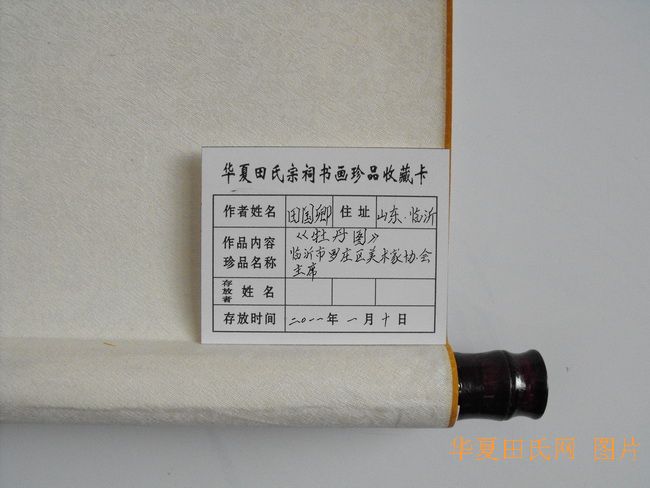 华夏田氏宗祠书画珍品收藏卡
作者姓名 田国卿 住址 山东·临沂
作品内容 《牡丹图》
珍品名称 临沂市罗庄区美术家协会
主席
存放者 姓名
存放时间 二〇一一年一月十日
华夏田氏网 图片